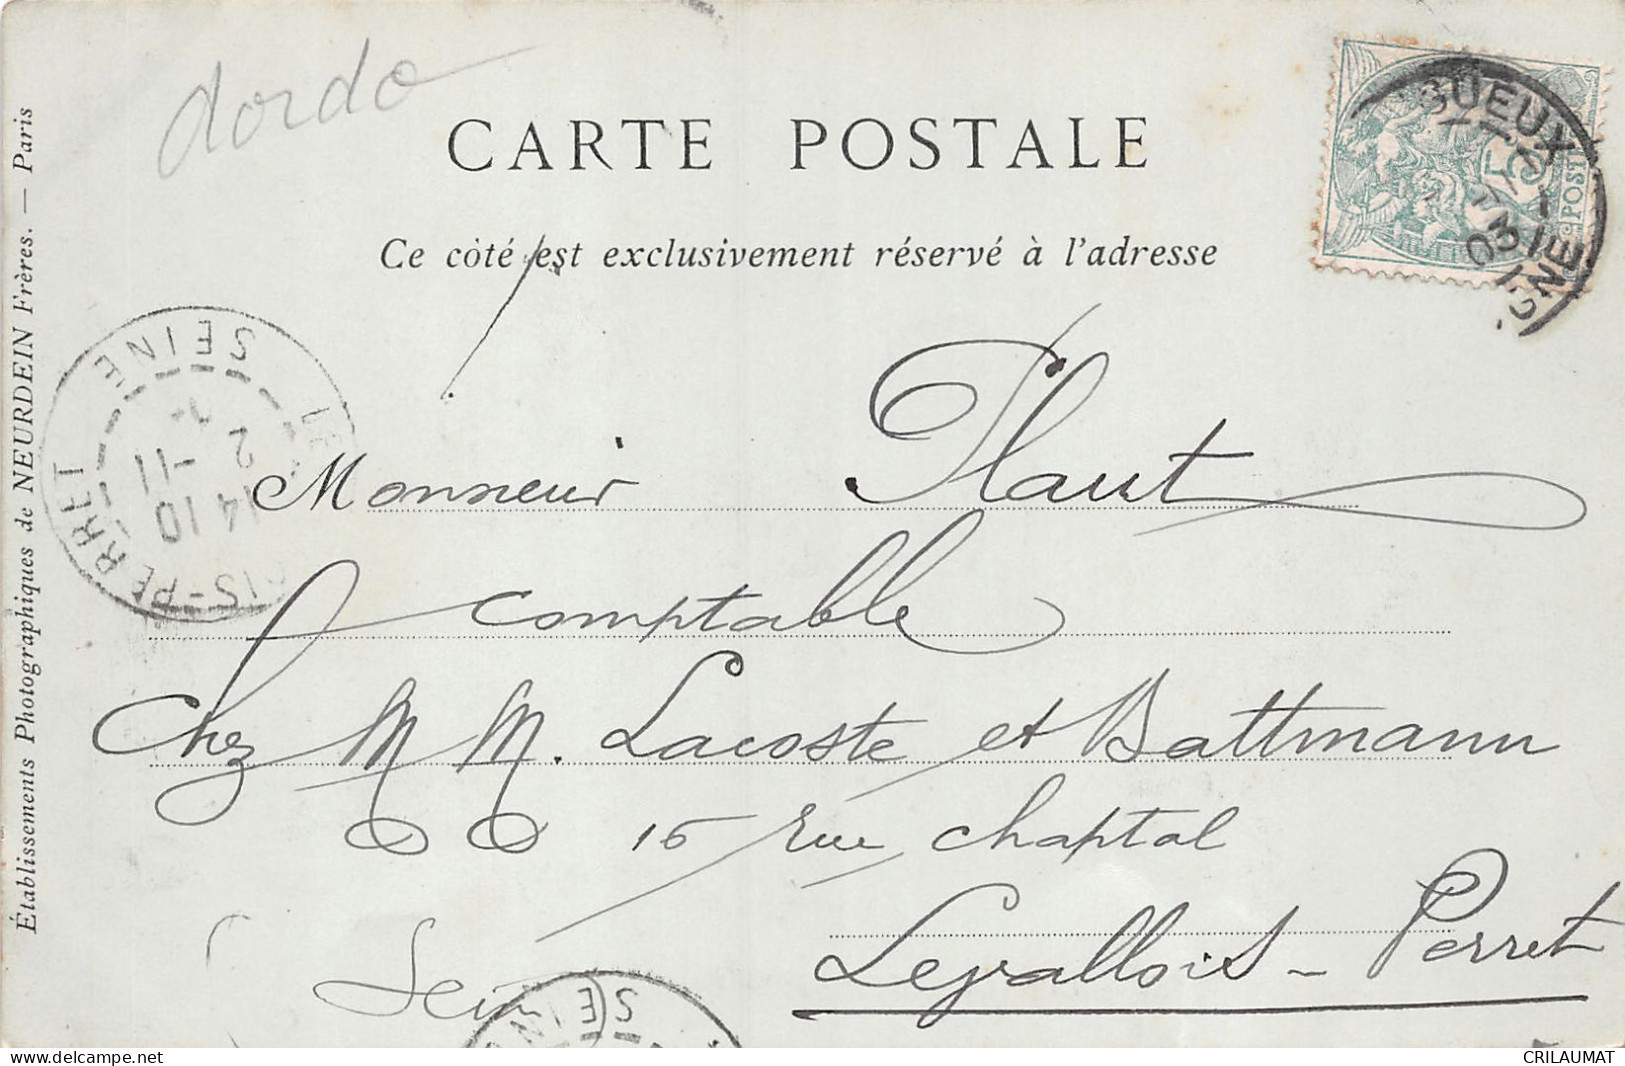 dordo
CARTE POSTALE
Ce côté est exclusivement réservé à l'adresse
Établissements Photographiques de NEURDEIN Frères. — Paris
5
POSTE
GUEUX
03
GNE
SEINE
2 -11
14 10
OIS-PERRET
Monsieur Plaut
comptable
Chez M M. Lacoste et Battmann
15 rue Chaptal
Levallois - Perret
Seine
SEINE
CRILAUMAT